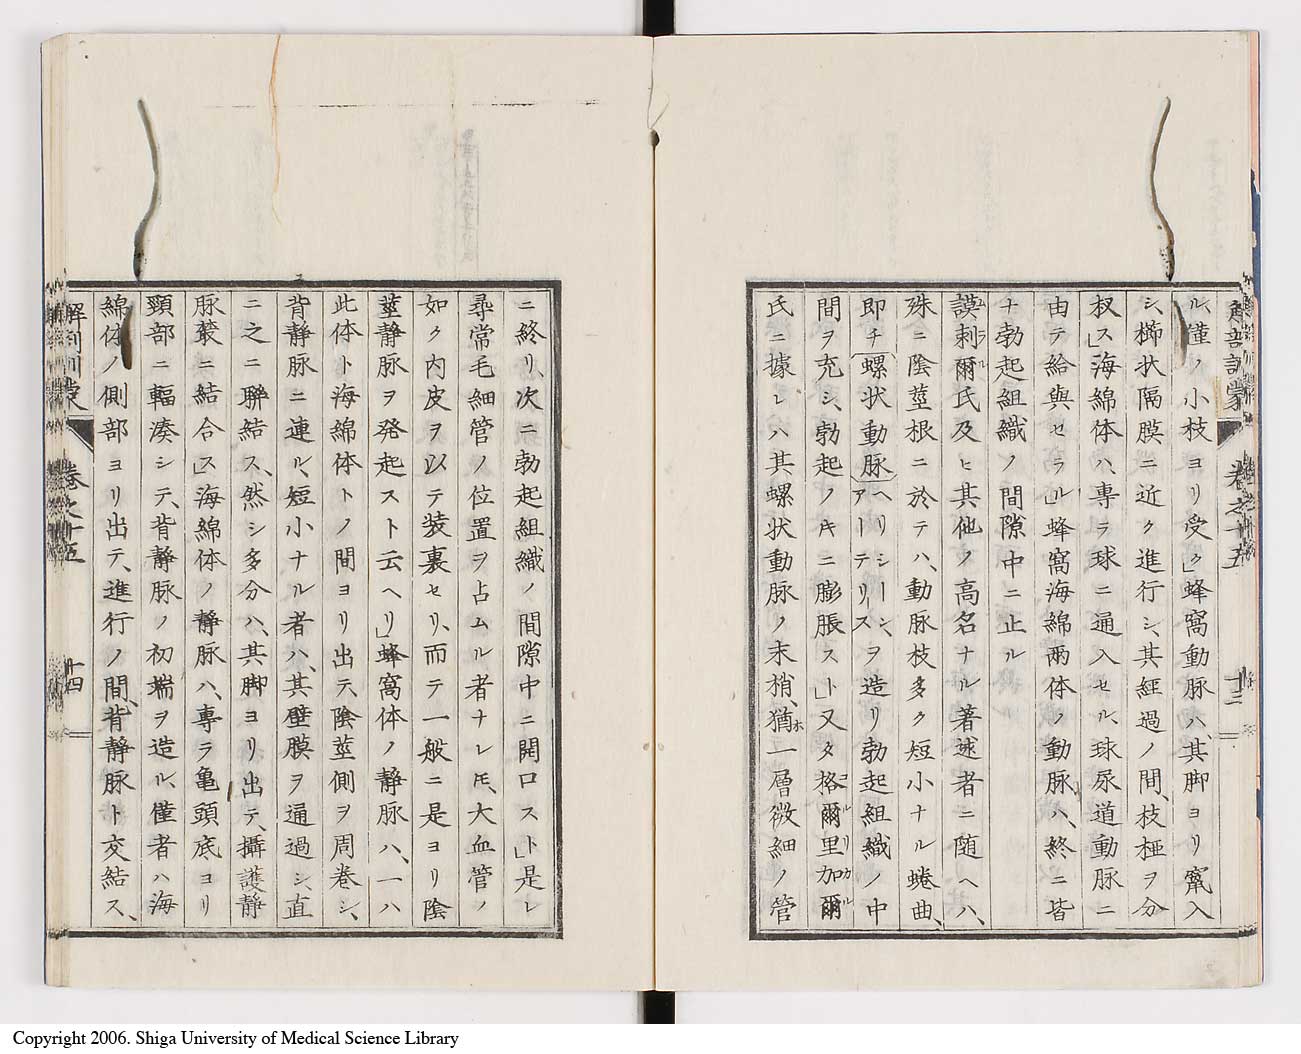 解剖訓蒙 卷之十五 十三
ル、僅ノ小枝ヨリ受ク」蜂窩動脈ハ、其脚ヨリ竄入
シ、櫛状隔膜ニ近ク進行シ、其経過ノ間、枝極ヲ分
杈ス」海綿体ハ、専ラ球ニ通入セル、球尿道動脈ニ
由テ給與セラル」蜂窩海綿兩体ノ動脈ハ、終ニ皆
ナ勃起組織ノ間隙中ニ止ル
謨剌爾氏及ヒ其他ノ高名ナル著述者ニ随ヘハ、
殊ニ陰莖根ニ於テハ、動脈枝多ク短小ナル蜷曲、
即チ螺状動脈ヘリシーン、アーテリースヲ造リ勃起組織ノ中
間ヲ充シ、勃起ノ時ニ膨脹スト」又タ格爾里加爾
氏ニ據レハ其螺状動脈ノ末梢、猶ホ一層微細ノ管
ニ終リ、次ニ勃起組織ノ間隙中ニ開口スト」是レ
尋常毛細管ノ位置ヲ占ムル者ナレ𪜈、大血管ノ
如ク内皮ヲ以テ装裏セリ、而テ一般ニ是ヨリ陰
莖静脈ヲ発起スト云ヘリ」蜂窩体ノ静脈ハ、一ハ
此体ト海綿体トノ間ヨリ出テ、陰莖側ヲ周巻シ、
背静脈ニ連ル、短小ナル者ハ、其壁膜ヲ通過シ、直
ニ之ニ聯結ス、然シ多分ハ、其脚ヨリ出テ、攝護静
脉叢ニ結合ス」海綿体ノ静脈ハ、専ラ亀頭底ヨリ
頸部ニ輻湊シテ、背静脈ノ初端ヲ造ル、僅者ハ海
綿体ノ側部ヨリ出テ、進行ノ間、背静脈ト交結ス、
解剖訓蒙 卷之十五 十四
Copyright 2006. Shiga University of Medical Science Library